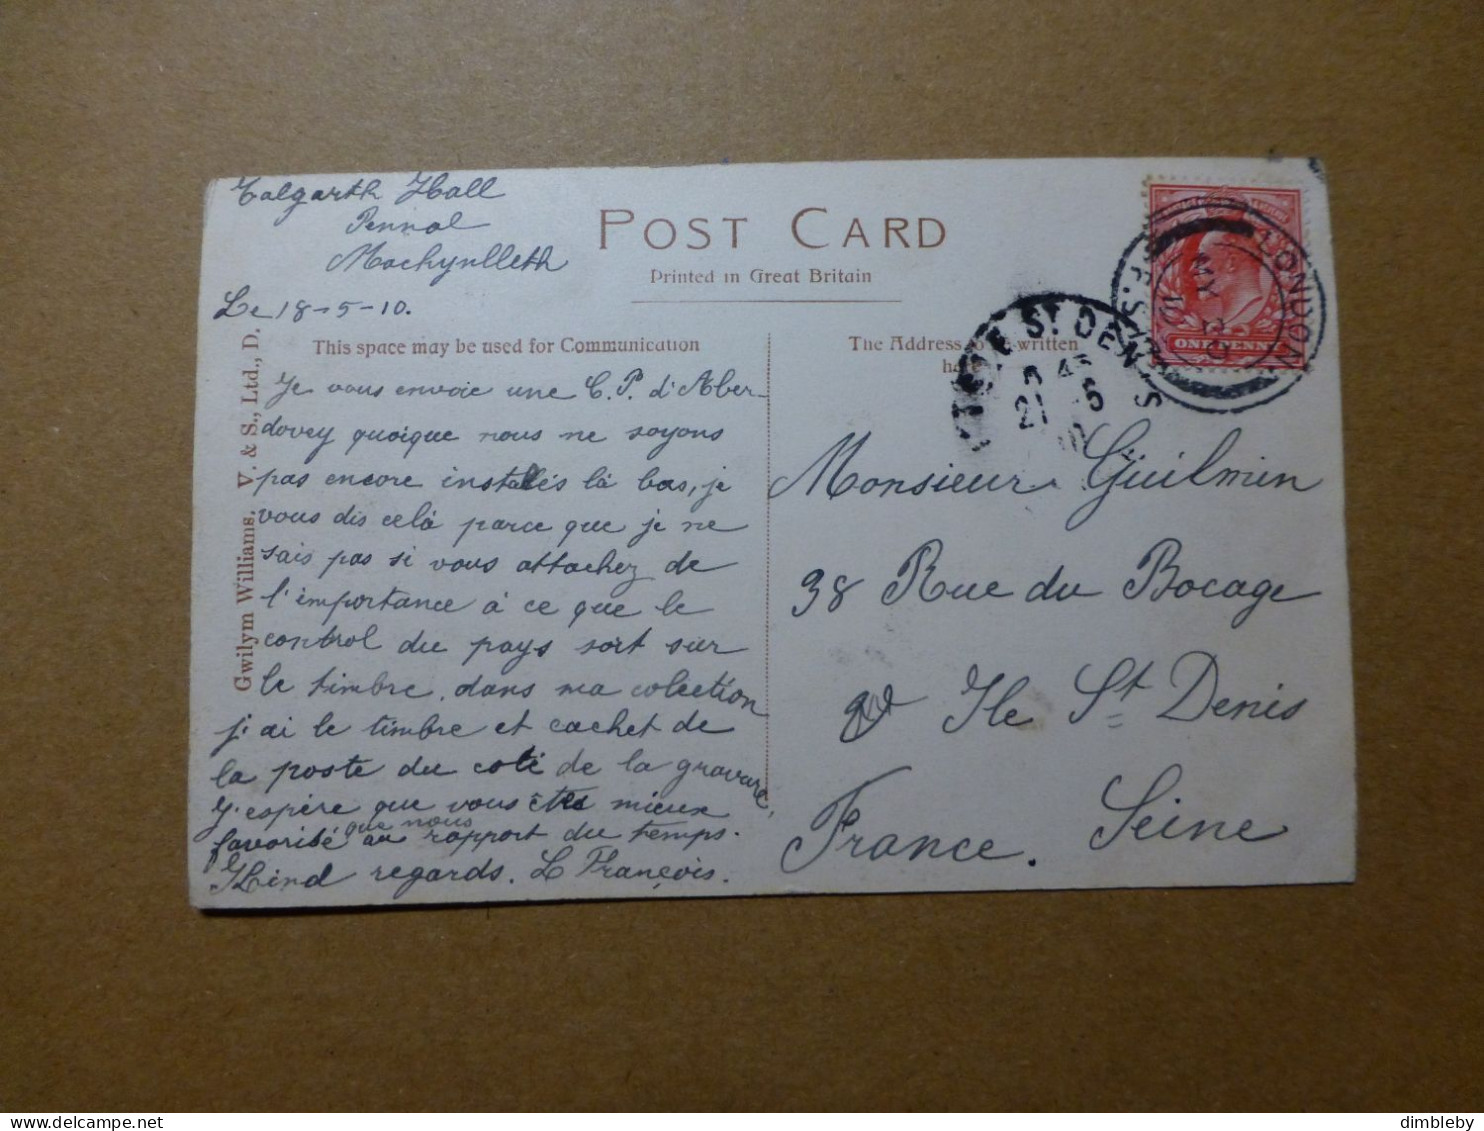 Talgarth Hall
Pennal
Machynlleth
Le 18-5-10.
POST CARD
Printed in Great Britain
This space may be used for Communication
The Address to be written
here
Gwilym Williams, V. & S., Ltd., D.
Je vous envoie une C.P. d'Aber-
dovey quoique nous ne soyons
pas encore installés là bas, je
vous dis celà parce que je ne
sais pas si vous attachez de
l'importance à ce que le
control du pays soit sur
le timbre, dans ma colection
j'ai le timbre et cachet de
la poste du coté de la gravure,
J'espère que vous êtes mieux
favorisé que nous au rapport du temps.
Kind regards. L François.
Monsieur Guilmin
38 Rue du Bocage
Ile St Denis
France. Seine
LONDON
MY 20
10
ILE ST DENIS
21 -5
10
ONE PENNY
dimbleby